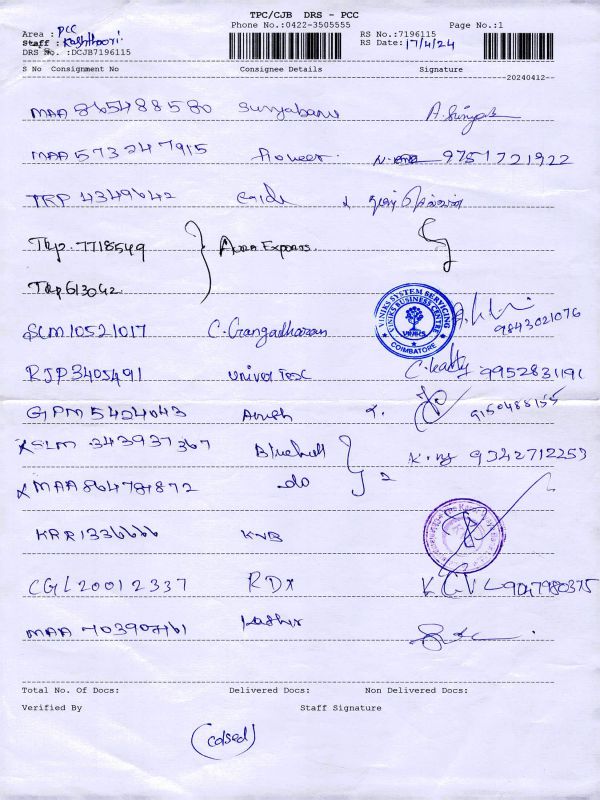 TPC/CJB DRS - PCC
Phone No.:0422-3505555 Page No.:1
Area : PCC RS No.:7196115
Staff : Kasthoori RS Date: 17/4/24
DRS No. :DCJB7196115
S No Consignment No Consignee Details Signature
20240412--
MAA 865488580 Suryabanu A. Surya
MAA 573247915 Pioneer. 9751721922
TRP 4349642
Trp. 7718549 Aura Exports.
Trp 613042
SLM10521017 C. Gangadharan 9843021076
VINIKS SYSTEM SERVICING
VINIKS BUSINESS CENTRE
VINIKS
COIMBATORE
RJP3405491 Univer Tesc 9952831191
GPM 5424043 Anush 9150488155
X SLM 343937367 Bluehill 2 9342712253
X MAA 864781872 do
KRR1336666 KNB
CGL20012337 RDX 9047980375
MAA 703907161
Total No. Of Docs: Delivered Docs: Non Delivered Docs:
Verified By Staff Signature
(Colsed)